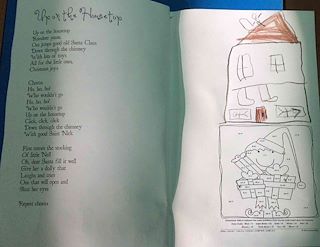 Up on the Housetop
Up on the housetop
Reindeer pause,
Out jumps good old Santa Claus
Down through the chimney
With lots of toys
All for the little ones,
Christmas joys
Chorus
Ho, ho, ho!
Who wouldn't go
Ho, ho, ho!
Who wouldn't go
Up on the housetop
Click, click, click
Down through the chimney
With good Saint Nick
First comes the stocking
Of little Nell
Oh, dear Santa fill it well
Give her a dolly that
Laughs and cries
One that will open and
Shut her eyes
Repeat chorus